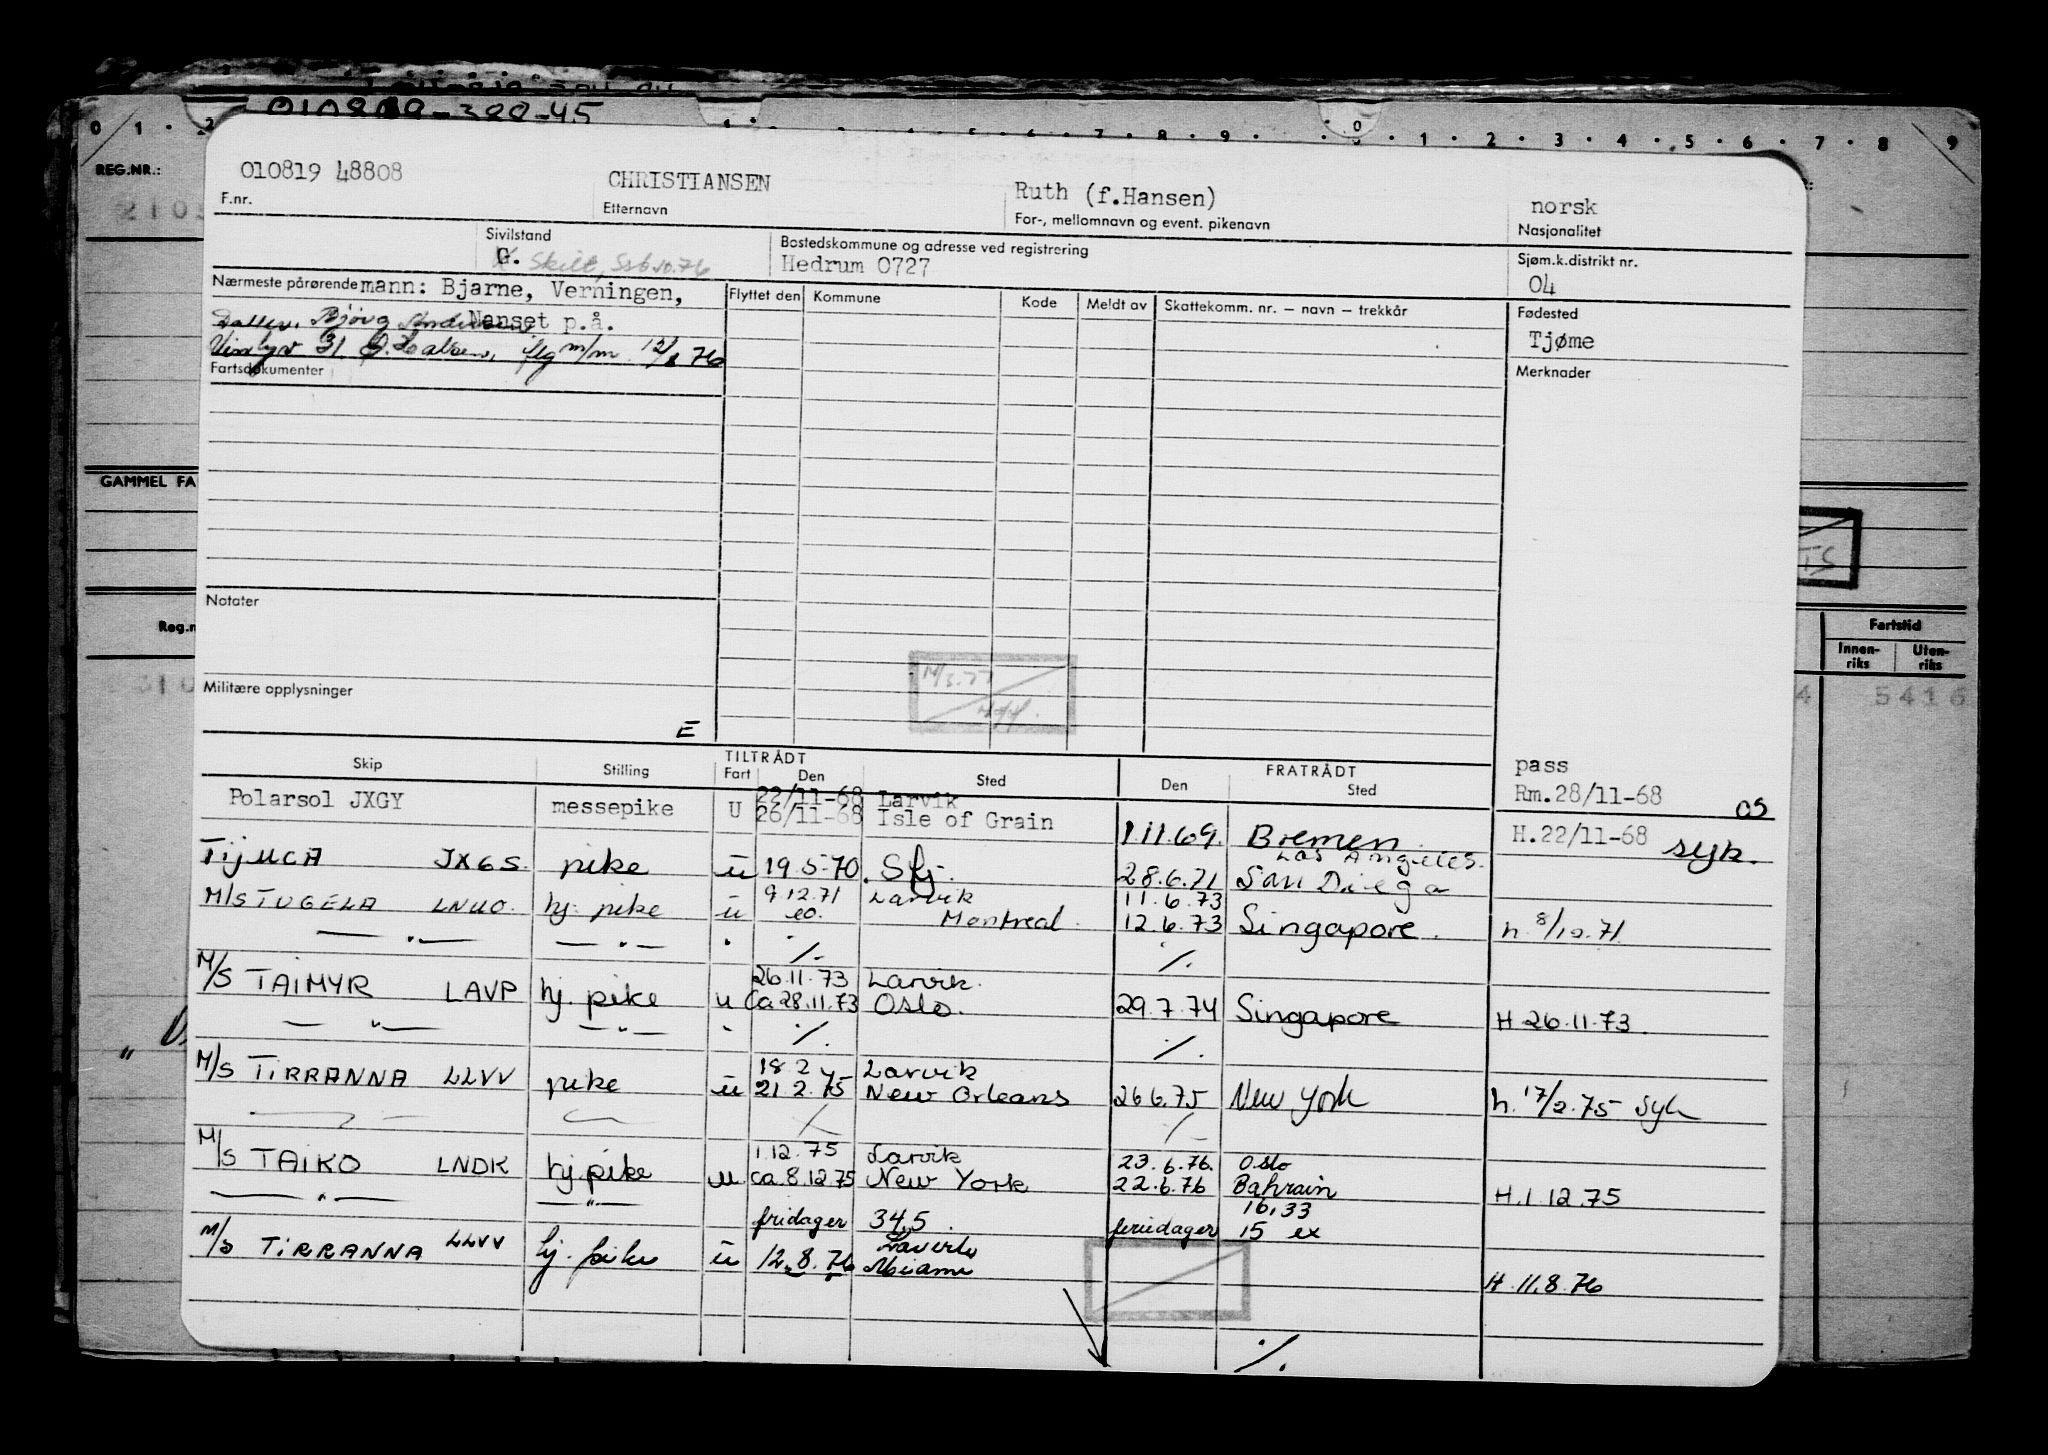 010819-388-45
0 1 2 7 8 9 0 1 2 3 4 5 6 7 8 9
REG.NR.:
010819 48808 CHRISTIANSEN Ruth (f.Hansen) norsk
F.nr. Etternavn For-, mellomnavn og event. pikenavn Nasjonalitet
Sivilstand Bostedskommune og adresse ved registrering Sjøm.k.distrikt nr.
G. Skilt, Hedrum 0727 04
Nærmeste pårørende mann: Bjarne, Verningen, Flyttet den Kommune Kode Meldt av Skattekomm. nr. – navn – trekkår Fødested
Datter, Bjørg Nanset p.å. Tjøme
31 m/m 76
Fartsdokumenter Merknader
GAMMEL FA
TS
Notater
Reg.n Fartstid
Innenriks Utenriks
Militære opplysninger
5416
E
Skip Stilling TILTRÅDT Fart Den Sted FRATRÅDT Den Sted pass
Rm.28/11-68 OS
Polarsol JXGY messepike U 22/11-68 Larvik
26/11-68 Isle of Grain 1.11.69. Bremen. H.22/11-68 syk.
Los Angeles.
TIJUCA JXGS pike u 19.5-70. Sfj. 28.6.71 San Diego
M/S TUGELA LNUO. hj. pike u 9.12.71 Larvik 11.6.73
eo. Montreal. 12.6.73 Singapore. h. 8/12.71
— " — — " — " ./. ./.
M/S TAIMYR LAVP hj. pike u 26.11.73 Larvik.
Ca 28.11.73 Oslo. 29.7.74 Singapore H.26.11.73.
— " — — " — " ./. ./.
M/S TIRRANNA LLVV pike u 18 2 Larvik
21.2.75 New Orleans 26.6.75 New York h. 17/2.75 syk
M/S TAIKO LNDK hj. pike u 1.12.75 Larvik 23.6.76. Oslo
ca.8.12.75 New York 22.6.76 Bahrain H.1.12.75
— " — — " — 16,33
fridager 34,5. feriedager 15 ex
M/S TIRRANNA LLVV hj. pike u 12.8.76 Larvik
Miami H.11.8.76
./.